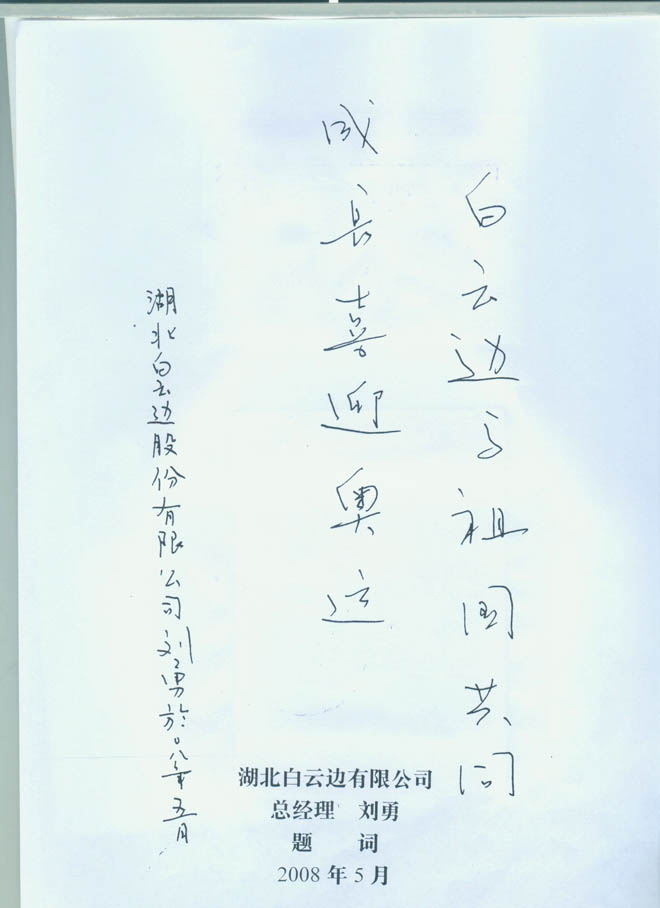 白云边与祖国共同
成长喜迎奥运
湖北白云边股份有限公司刘勇於〇八年五月
湖北白云边有限公司
总经理 刘勇
题 词
2008年5月